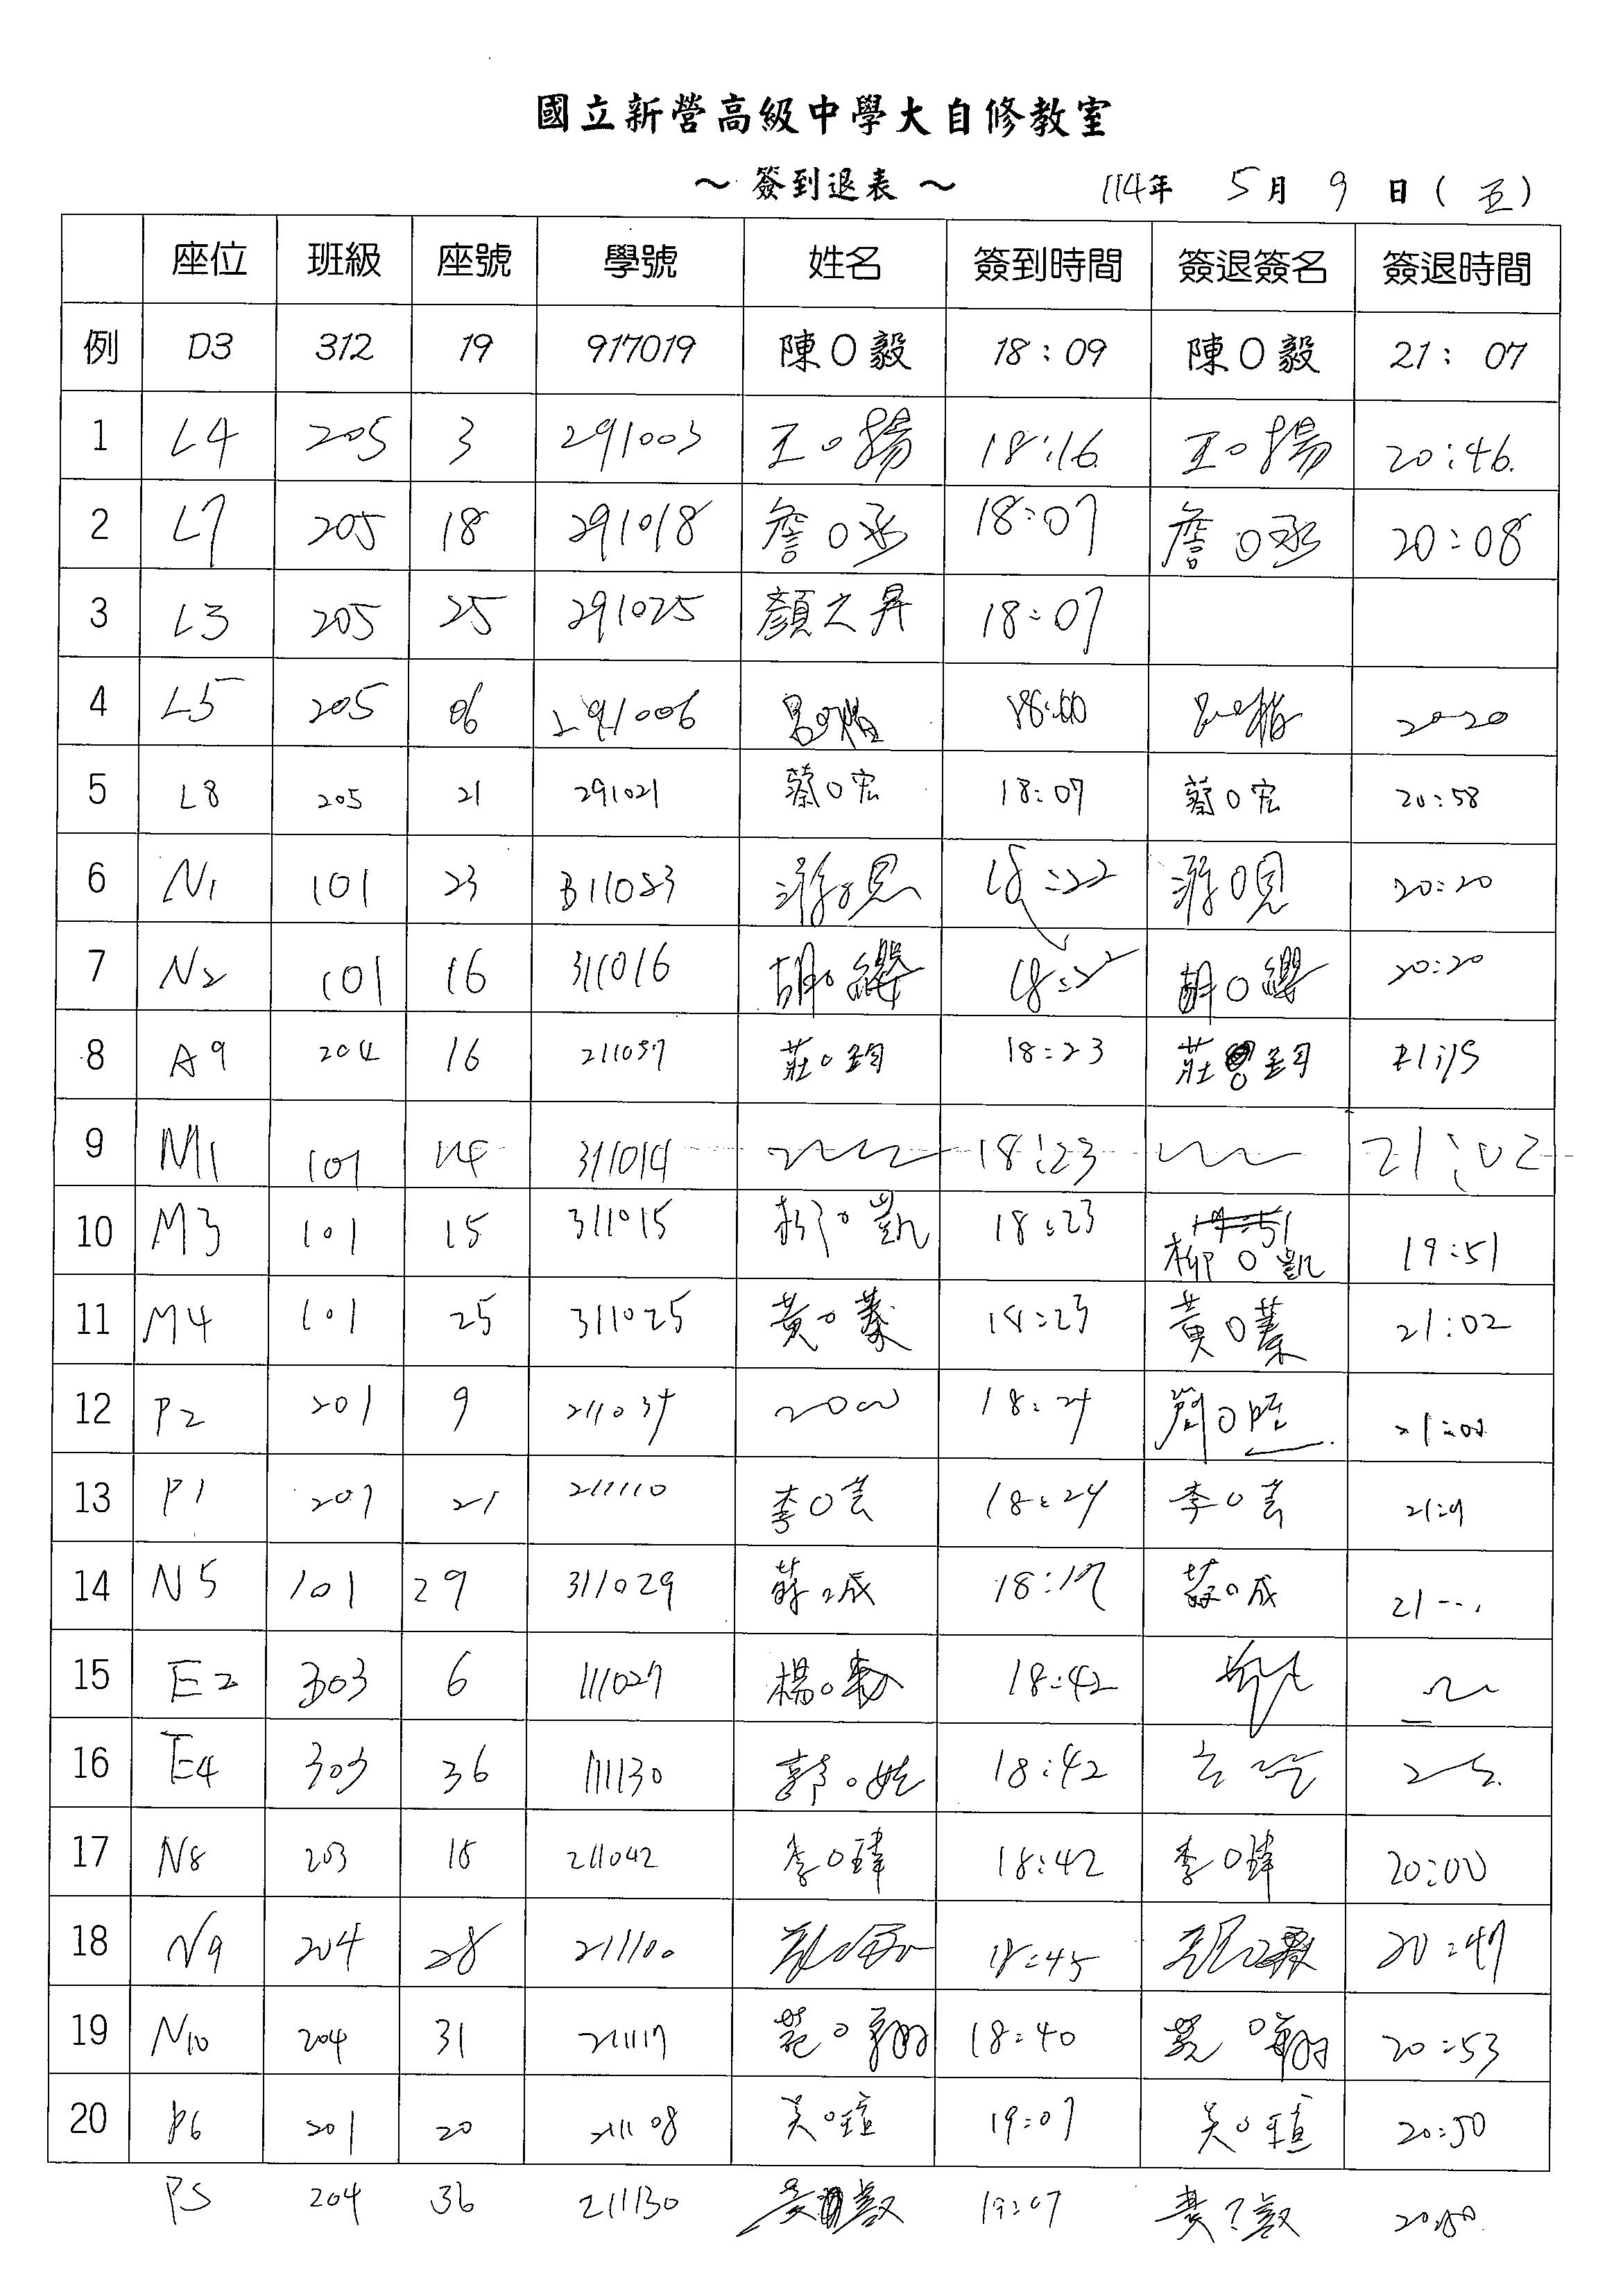 國立新營高級中學大自修教室
～簽到退表～ 114年 5月 9日(五)
座位 班級 座號 學號 姓名 簽到時間 簽退簽名 簽退時間
例 D3 312 19 917019 陳O毅 18:09 陳O毅 21:07
1 L4 205 3 291003 王O揚 18:16 王O揚 20:46
2 L7 205 18 291018 詹O丞 18:07 詹O丞 20:08
3 L3 205 25 291025 顏之昇 18:07
4 L5 205 06 291006 18:00 2020
5 L8 205 21 291021 蔡O宏 18:07 蔡O宏 20:58
6 N1 101 23 311023 游O恩 18:22 20:20
7 N2 101 16 311016 胡O纓 18:22 胡O纓 20:20
8 A9 204 16 211037 莊O鈞 18:23 莊 鈞 21:15
9 M1 101 14 311014 18:23 21:02
10 M3 101 15 311015 柳O凱 18:23 柳O凱 19:51
11 M4 101 25 311025 黃O蓁 18:23 黃O蓁 21:02
12 P2 201 9 211034 18:24
13 P1 207 21 211110 李O芸 18:24 李O芸
14 N5 101 29 311029 18:17 21
15 E2 303 6 111027 楊O勳 18:42
16 E4 303 36 111130 郭O 18:42
17 N8 203 18 211042 李O瑋 18:42 李O瑋 20:00
18 N9 204 28 211100 18:45 20:47
19 N10 204 31 211117 范O翔 18:40 范O翔 20:53
20 P6 201 20 211108 吳O瑄 19:07 吳O瑄 20:50
P5 204 36 211130 19:07 20:50